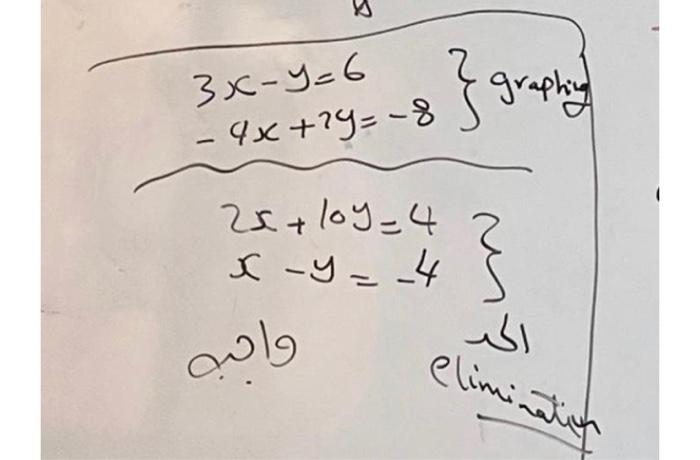 3x-y=6
-4x+2y=-8 } graphing
2x+10y=4
x-y=-4 }
واجب
elimination